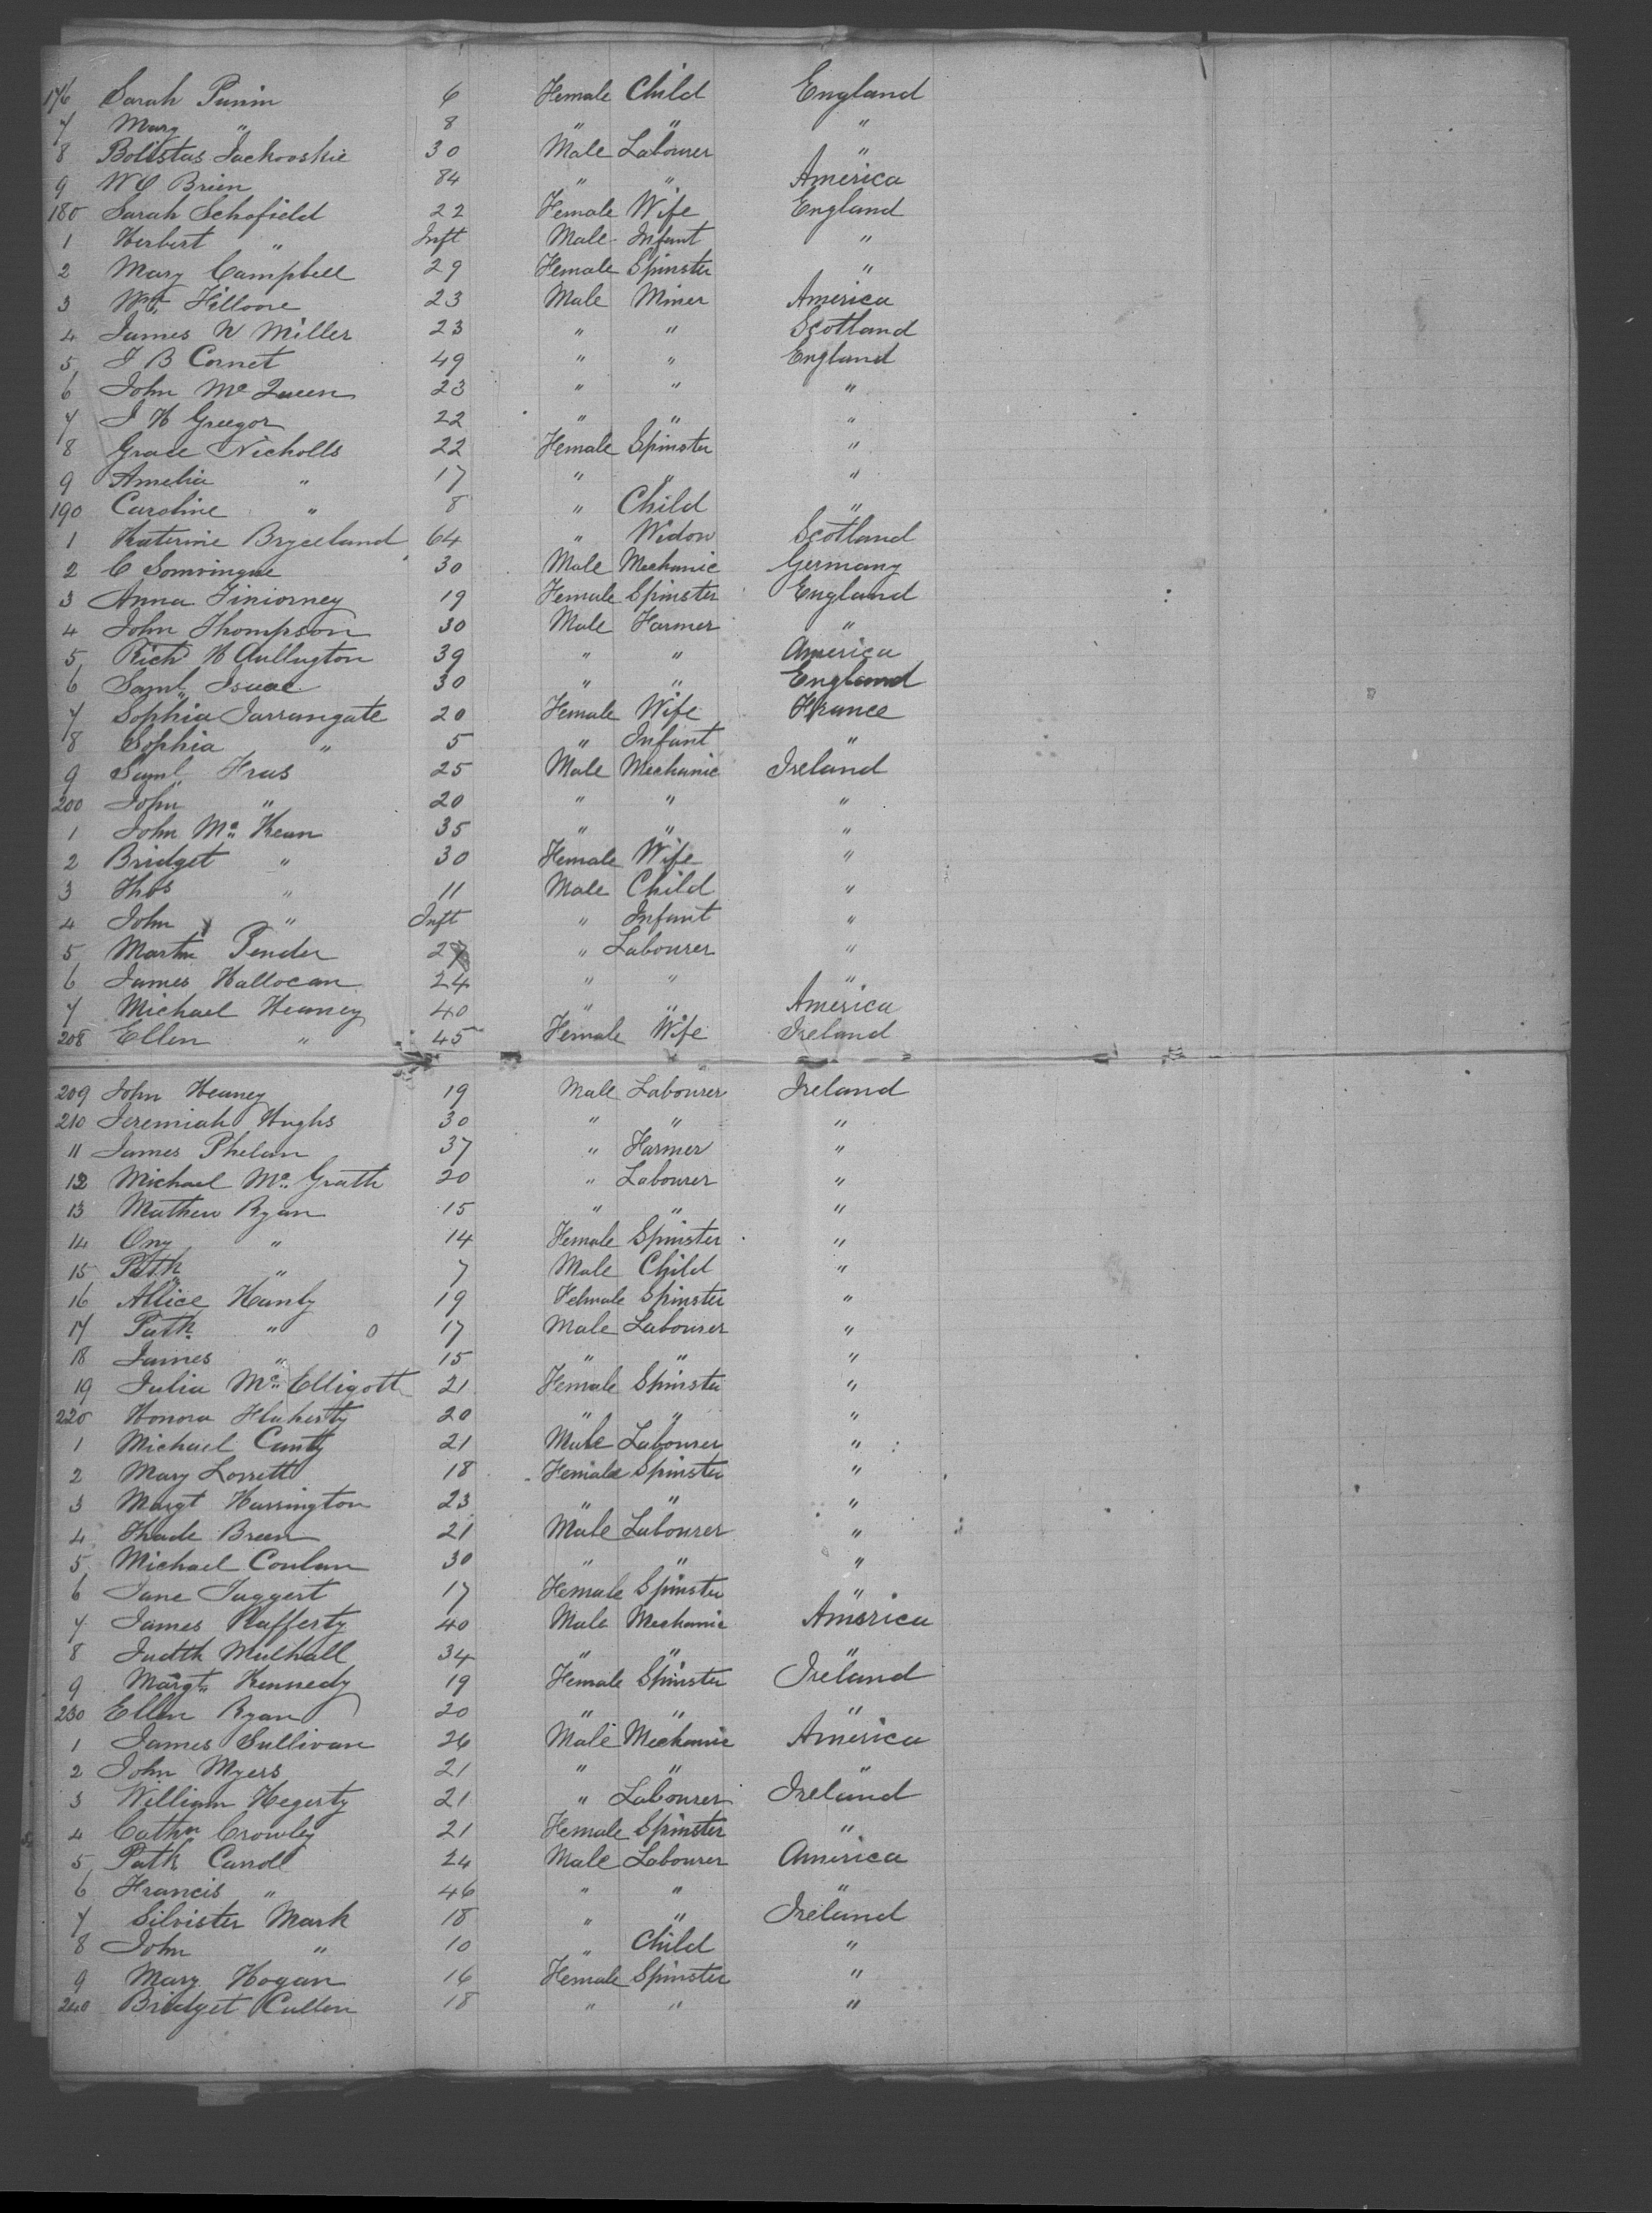 176 Sarah Punin 6 Female Child England
7 Mary " 8 " " "
8 Bolistus Jackooskie 30 Male Labourer "
9 W O Brien 84 " " America
180 Sarah Schofield 22 Female Wife England
1 Herbert " Inft Male Infant "
2 Mary Campbell 29 Female Spinster "
3 Wm Filloore 23 Male Miner America
4 James W Miller 23 " " Scotland
5 J B Cornet 49 " " England
6 John Mc Queen 23 " " "
7 J H Greegor 22 " " "
8 Grace Nicholls 22 Female Spinster "
9 Amelia " 17 " " "
190 Caroline " 8 " Child "
1 Katerine Bryceland 64 " Widow Scotland
2 C Somvingue 30 Male Mechanic Germany
3 Anna Finiorney 19 Female Spinster England
4 John Thompson 30 Male Farmer "
5 Richd H Aullugton 39 " " America
6 Saml Isaac 30 " " England
7 Sophia Jarrangate 20 Female Wife France
8 Sophia " 5 " Infant "
9 Saml Fras 25 Male Mechanic Ireland
200 John " 20 " " "
1 John Mc Kean 35 " " "
2 Bridget " 30 Female Wife "
3 Thos " 11 Male Child "
4 John " Inft " Infant "
5 Martin Pender 27 " Labourer "
6 James Hallocan 24 " " "
7 Michael Heaney 40 " " America
208 Ellen " 45 Female Wife Ireland
209 John Heaney 19 Male Labourer Ireland
210 Jeremiah Hughs 30 " " "
11 James Phelan 37 " Farmer "
12 Michael Mc Grath 20 " Labourer "
13 Mathew Ryan 15 " " "
14 Ony " 14 Female Spinster "
15 Patk " 7 Male Child "
16 Allice Hanly 19 Female Spinster "
17 Patk " 17 Male Labourer "
18 James " 15 " " "
19 Julia Mc Elligott 21 Female Spinster "
220 Honora Flaherty 20 " " "
1 Michael Canty 21 Male Labourer "
2 Mary Lorrett 18 Female Spinster "
3 Margt Harrington 23 " " "
4 Thade Breen 21 Male Labourer "
5 Michael Conlan 30 " " "
6 Jane Taggert 17 Female Spinster "
7 James Rafferty 40 Male Mechanic America
8 Judth Mulhall 34 " " "
9 Margt Kennedy 19 Female Spinster Ireland
230 Ellen Ryan 20 " " "
1 James Sullivan 26 Male Mechanic America
2 John Myers 21 " " "
3 William Hegerty 21 " Labourer Ireland
4 Cathn Crowley 21 Female Spinster "
5 Patk Carroll 24 Male Labourer America
6 Francis " 46 " " "
7 Silvister Mark 18 " " Ireland
8 John " 10 " Child "
9 Mary Hogan 16 Female Spinster "
240 Bridget Cullen 18 " " "